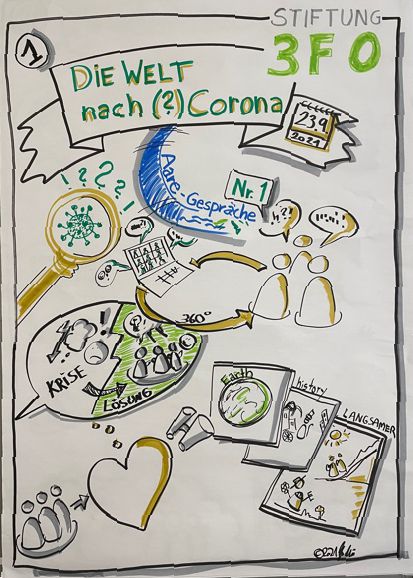 STIFTUNG
3FO
1
DIE WELT
nach (?) Corona
23.9
2021
Aare-Gespräche
Nr. 1
360°
KRISE
LÖSUNG
Earth
history
LANGSAMER